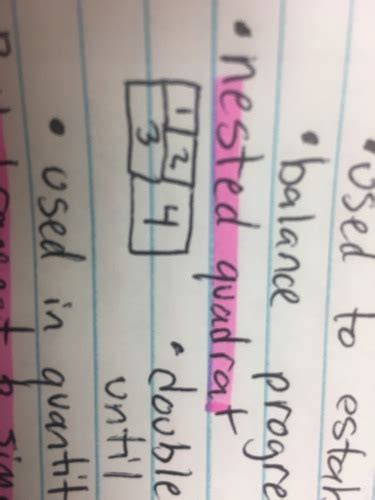 • used to
• balance progre
• nested quadrat
1 2 4
3
• double
until
• used in quantit